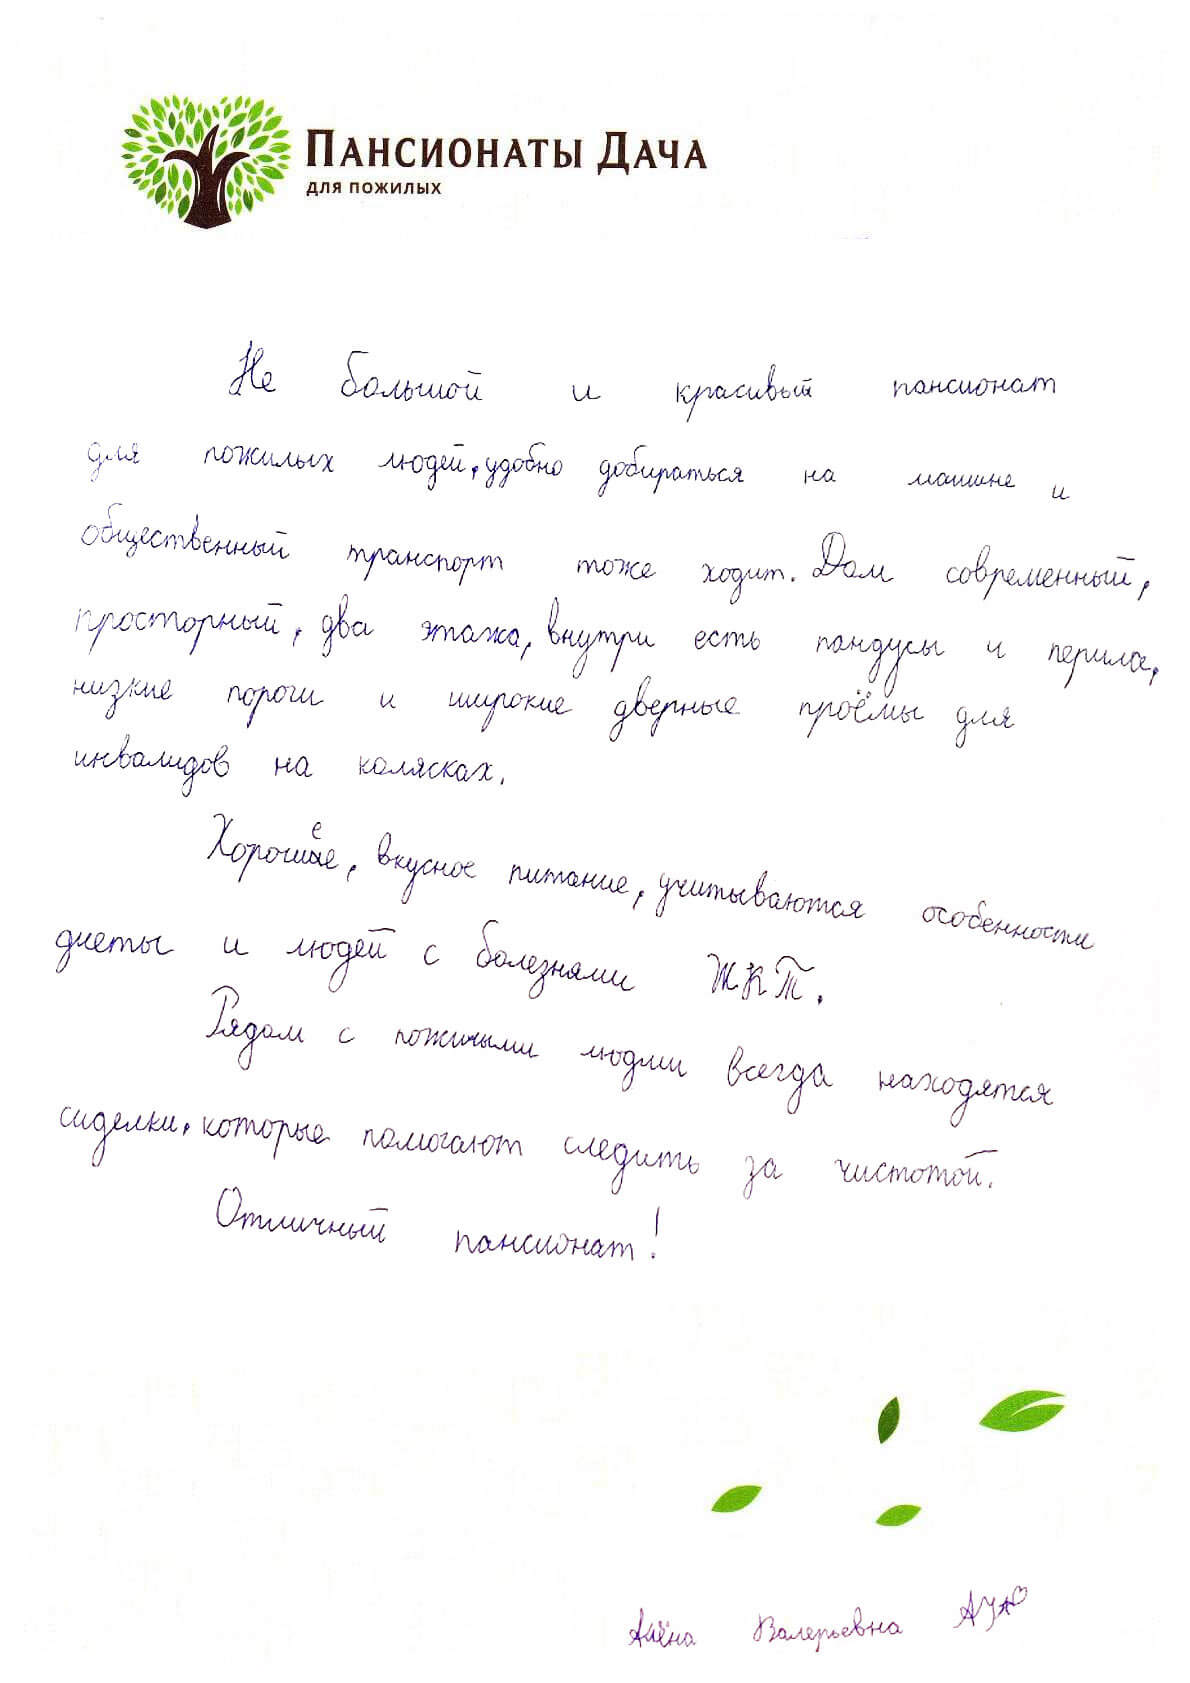 ПАНСИОНАТЫ ДАЧА
ДЛЯ ПОЖИЛЫХ
Не большой и красивый пансионат
для пожилых людей, удобно добираться на машине и
общественный транспорт тоже ходит. Дом современный,
просторный, два этажа, внутри есть пандусы и перила,
низкие пороги и широкие дверные проёмы для
инвалидов на колясках.
Хорошее, вкусное питание, учитываются особенности
диеты и людей с болезнями ЖКТ.
Рядом с пожилыми людми всегда находятся
сиделки, которые помогают следить за чистотой.
Отличный пансионат!
Алёна Валерьевна